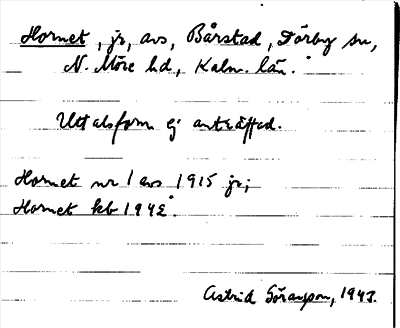 Hornet, jr, avs, Bårstad, Förby sn,
N. Möre hd, Kalm. län.
Uttalsform ej anträffad.
Hornet nr 1 avs 1915 jr;
Hornet kb 1942.
Astrid Göransson, 1943.